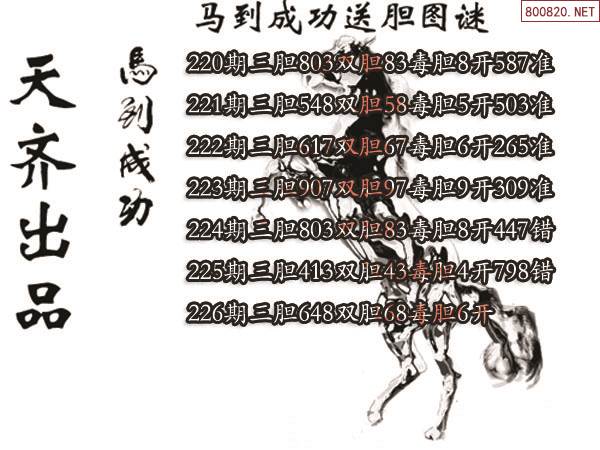 马到成功送胆图谜
800820.NET
天齐出品
馬到成功
220期三胆803双胆83毒胆8开587准
221期三胆548双胆58毒胆5开503准
222期三胆617双胆67毒胆6开265准
223期三胆907双胆97毒胆9开309准
224期三胆803双胆83毒胆8开447错
225期三胆413双胆43毒胆4开798错
226期三胆648双胆68毒胆6开